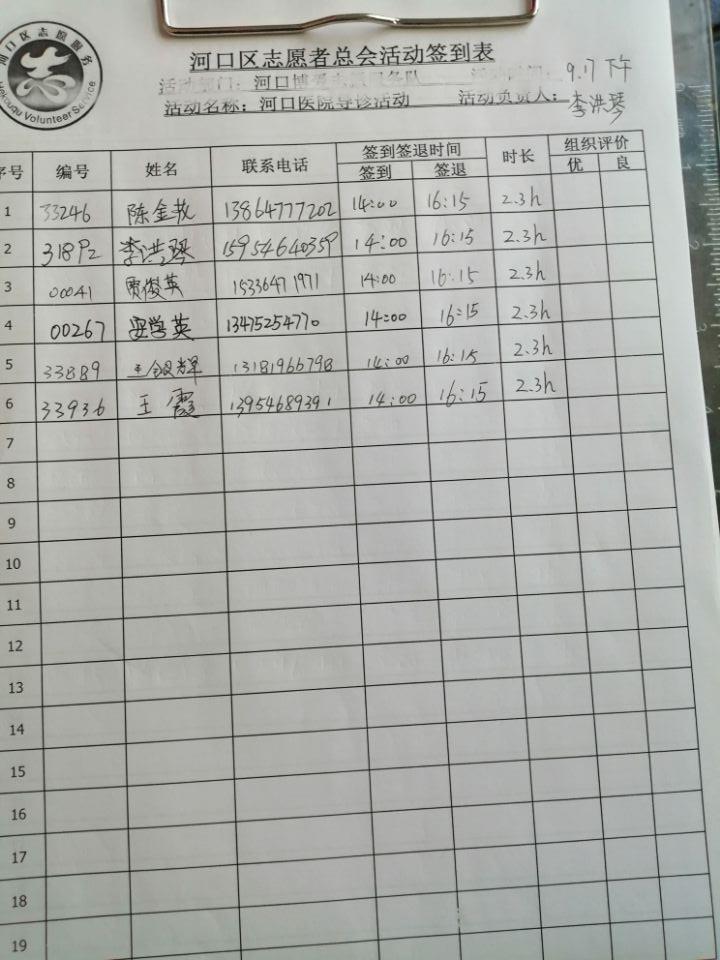 河口区志愿服务
Hekouqu Volunteer Service
河口区志愿者总会活动签到表
活动部门：河口博爱志愿服务队 活动时间：9.17下午
活动名称：河口医院导诊活动 活动负责人：李洪琴
序号 编号 姓名 联系电话 签到签退时间 时长 组织评价
签到 签退 优 良
1 33246 陈金教 13864777202 14:00 16:15 2.3h
2 31892 李洪琴 15954640359 14:00 16:15 2.3h
3 00041 贾俊英 15336471971 14:00 16:15 2.3h
4 00267 安学英 13475254770 14:00 16:15 2.3h
5 33889 王银辉 13181966798 14:00 16:15 2.3h
6 33936 王霞 13954689391 14:00 16:15 2.3h
7
8
9
10
11
12
13
14
15
16
17
18
19